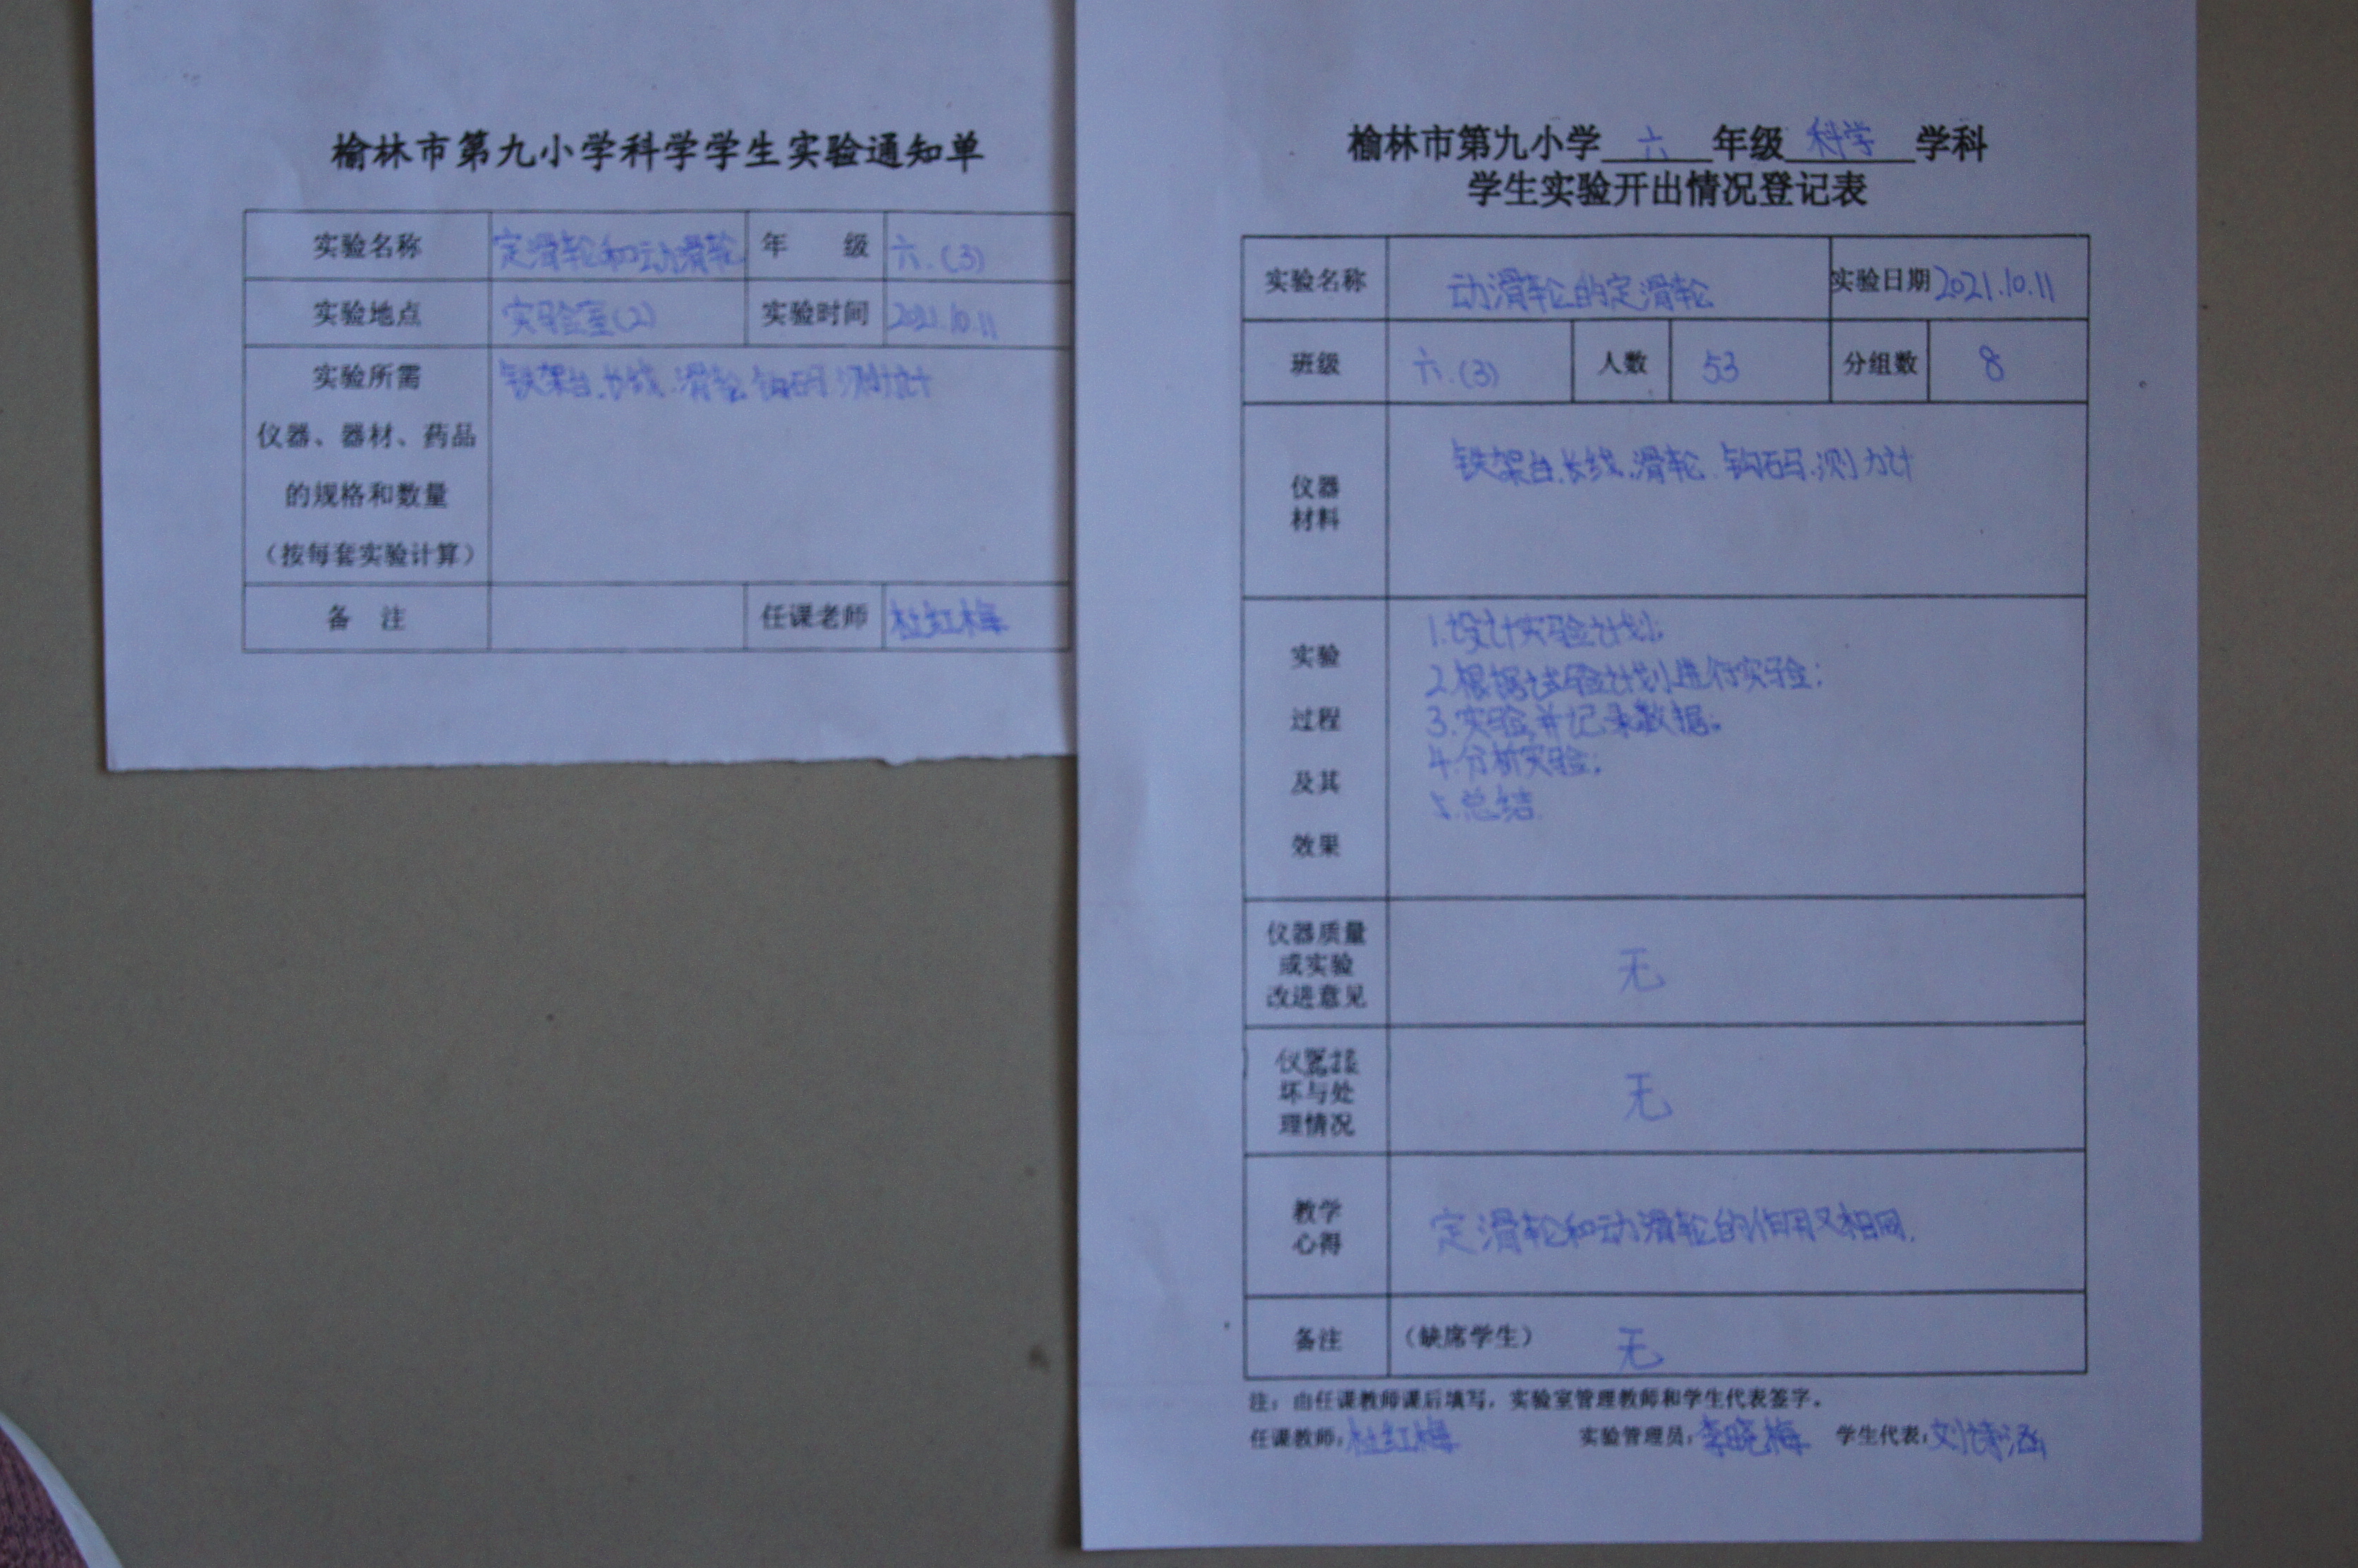 榆林市第九小学科学学生实验通知单
实验名称 定滑轮和动滑轮 年 级 六.(3)
实验地点 实验室(2) 实验时间 2021.10.11
实验所需 铁架台.长线.滑轮.钩码.测力计
仪器、器材、药品
的规格和数量
（按每套实验计算）
备 注 任课老师 杜红梅
榆林市第九小学 六 年级 科学 学科
学生实验开出情况登记表
实验名称 动滑轮的定滑轮 实验日期 2021.10.11
班级 六.(3) 人数 53 分组数 8
仪器
材料
铁架台.长线.滑轮.钩码.测力计
实验
过程
及其
效果
1.设计实验计划;
2.根据实验计划进行实验;
3.实验并记录数据。
4.分析实验;
5.总结
仪器质量
或实验
改进意见
无
仪器损
坏与处
理情况
无
教学
心得
定滑轮和动滑轮的作用又相同.
备注 （缺席学生） 无
注：由任课教师课后填写，实验室管理教师和学生代表签字。
任课教师：杜红梅 实验管理员：李晓梅 学生代表：刘诗涵